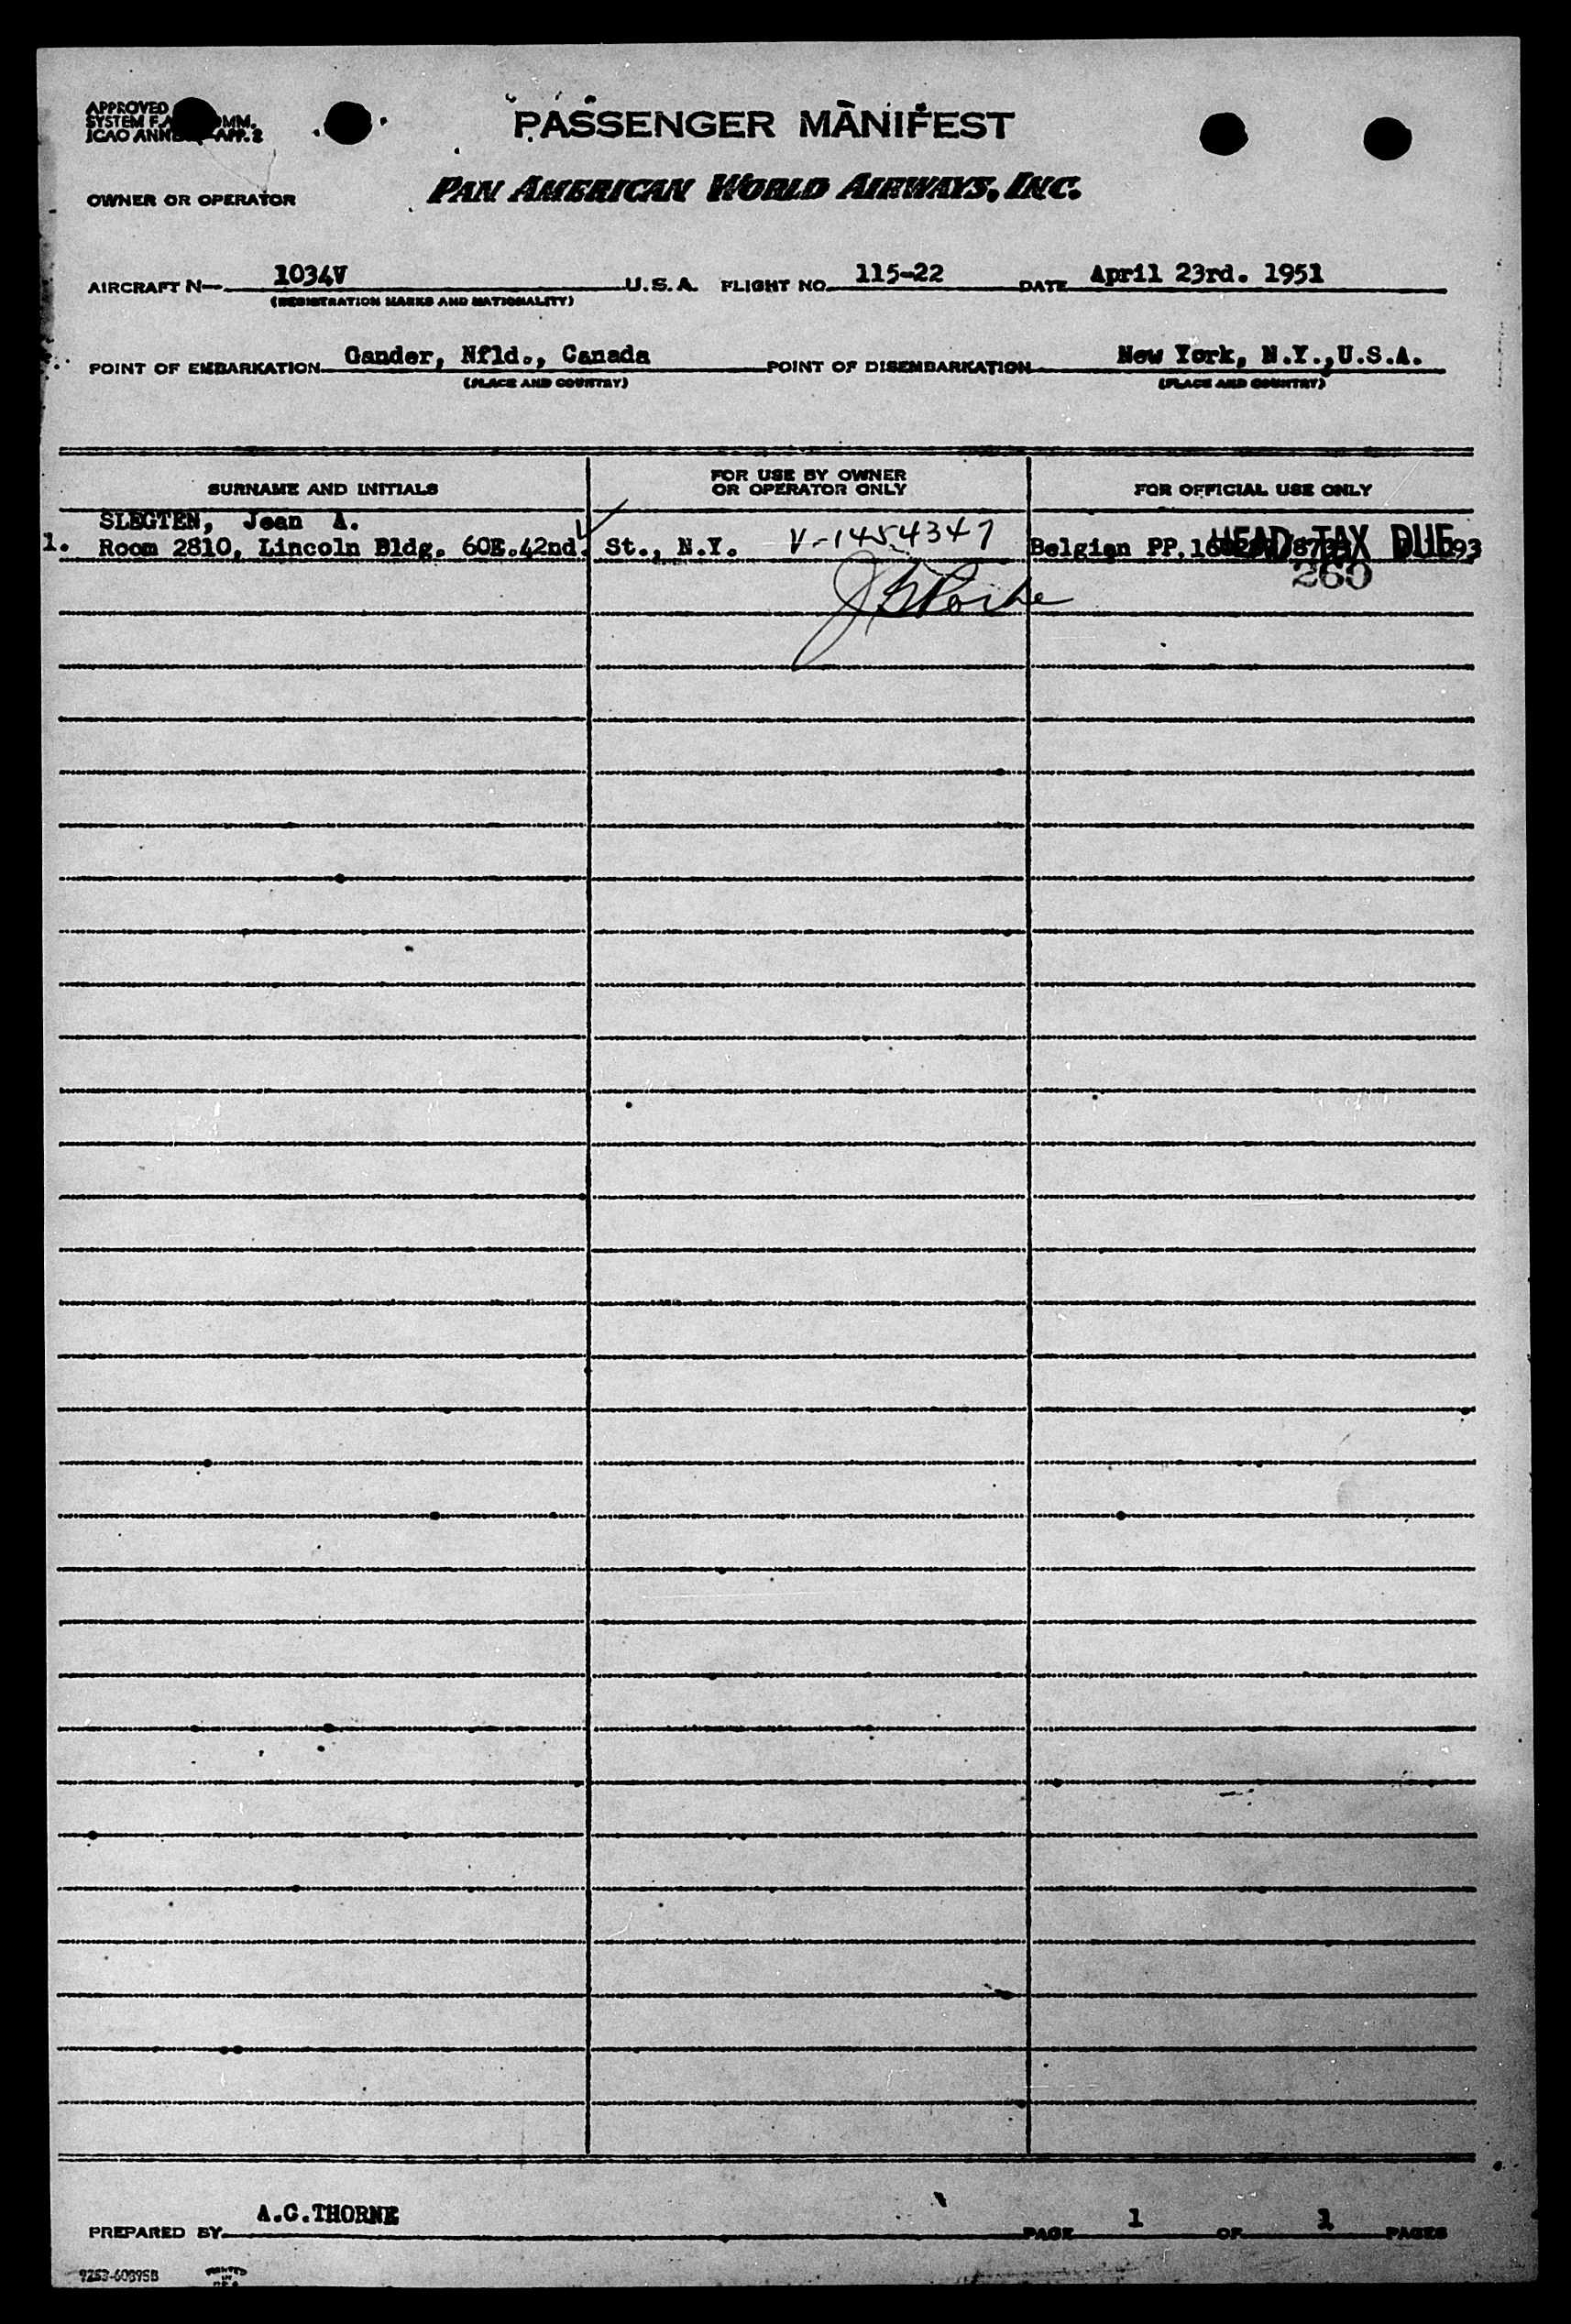 APPROVED
SYSTEM
ICAO APP. 2
PASSENGER MANIFEST
OWNER OR OPERATOR PAN AMERICAN WORLD AIRWAYS, INC.
AIRCRAFT N— 1034V U.S.A. FLIGHT NO. 115-22 DATE April 23rd. 1951
(REGISTRATION MARKS AND NATIONALITY)
POINT OF EMBARKATION Gander, Nfld., Canada POINT OF DISEMBARKATION New York, N.Y.,U.S.A.
(PLACE AND COUNTRY) (PLACE AND COUNTRY)
SURNAME AND INITIALS FOR USE BY OWNER OR OPERATOR ONLY FOR OFFICIAL USE ONLY
SLEGTEN, Jean A.
1. Room 2810, Lincoln Bldg. 60E.42nd. St., N.Y. V-1454347 Belgian PP. HEAD TAX DUE
260
PREPARED BY A.G.THORNE PAGE 1 OF 1 PAGES
PRINTED
IN